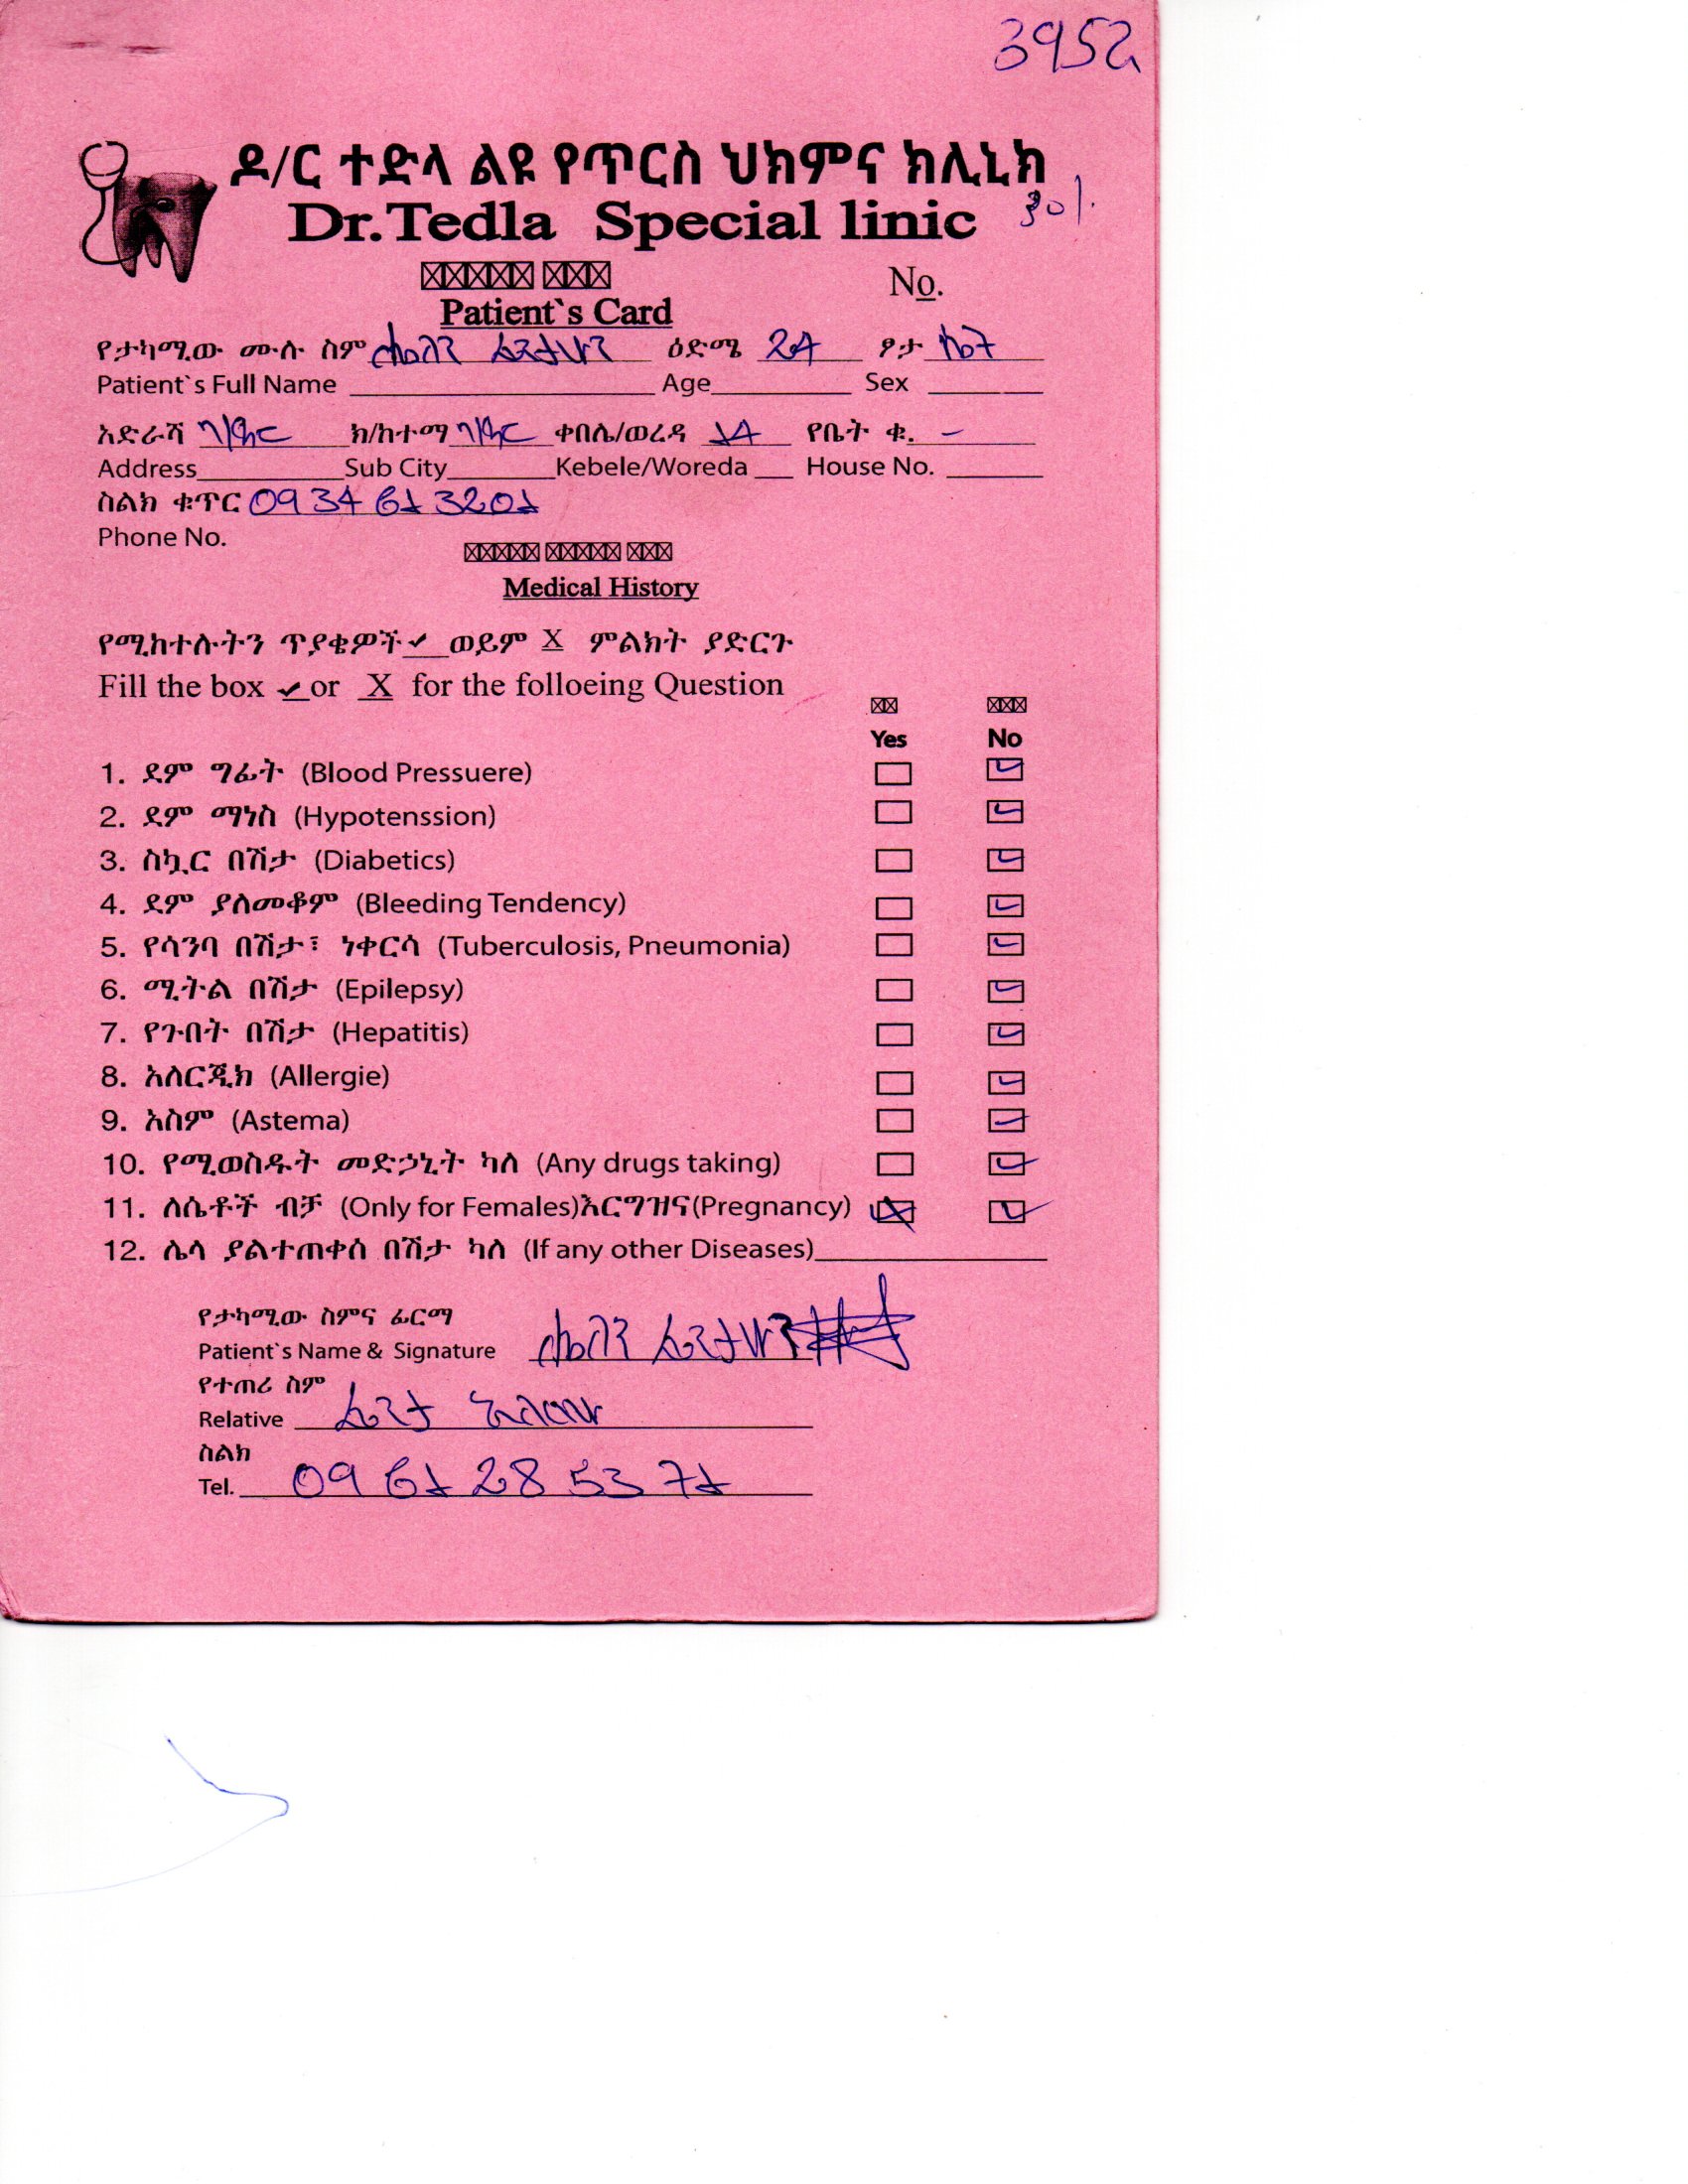 3952
ዶ/ር ተድላ ልዩ የጥርስ ህክምና ክሊኒክ
Dr.Tedla Special linic
No.
Patient`s Card
የታካሚው ሙሉ ስም ዕድሜ 24 ፆታ ሴት
Patient`s Full Name Age Sex
አድራሻ ክ/ከተማ ቀበሌ/ወረዳ 14 የቤት ቁ. -
Address Sub City Kebele/Woreda House No.
ስልክ ቁጥር 0934 61 3201
Phone No.
Medical History
የሚከተሉትን ጥያቄዎች ✓ ወይም X ምልክት ያድርጉ
Fill the box ✓ or X for the folloeing Question
Yes No
1. ደም ግፊት (Blood Pressuere)
2. ደም ማነስ (Hypotenssion)
3. ስኳር በሽታ (Diabetics)
4. ደም ያለመቆም (Bleeding Tendency)
5. የሳንባ በሽታ፣ ነቀርሳ (Tuberculosis, Pneumonia)
6. ሚትል በሽታ (Epilepsy)
7. የጉበት በሽታ (Hepatitis)
8. አለርጂክ (Allergie)
9. አስም (Astema)
10. የሚወስዱት መድኃኒት ካለ (Any drugs taking)
11. ለሴቶች ብቻ (Only for Females)እርግዝና(Pregnancy)
12. ሌላ ያልተጠቀሰ በሽታ ካለ (If any other Diseases)
የታካሚው ስምና ፊርማ
Patient`s Name & Signature
የተጠሪ ስም
Relative
ስልክ
Tel. 09 61 28 53 71